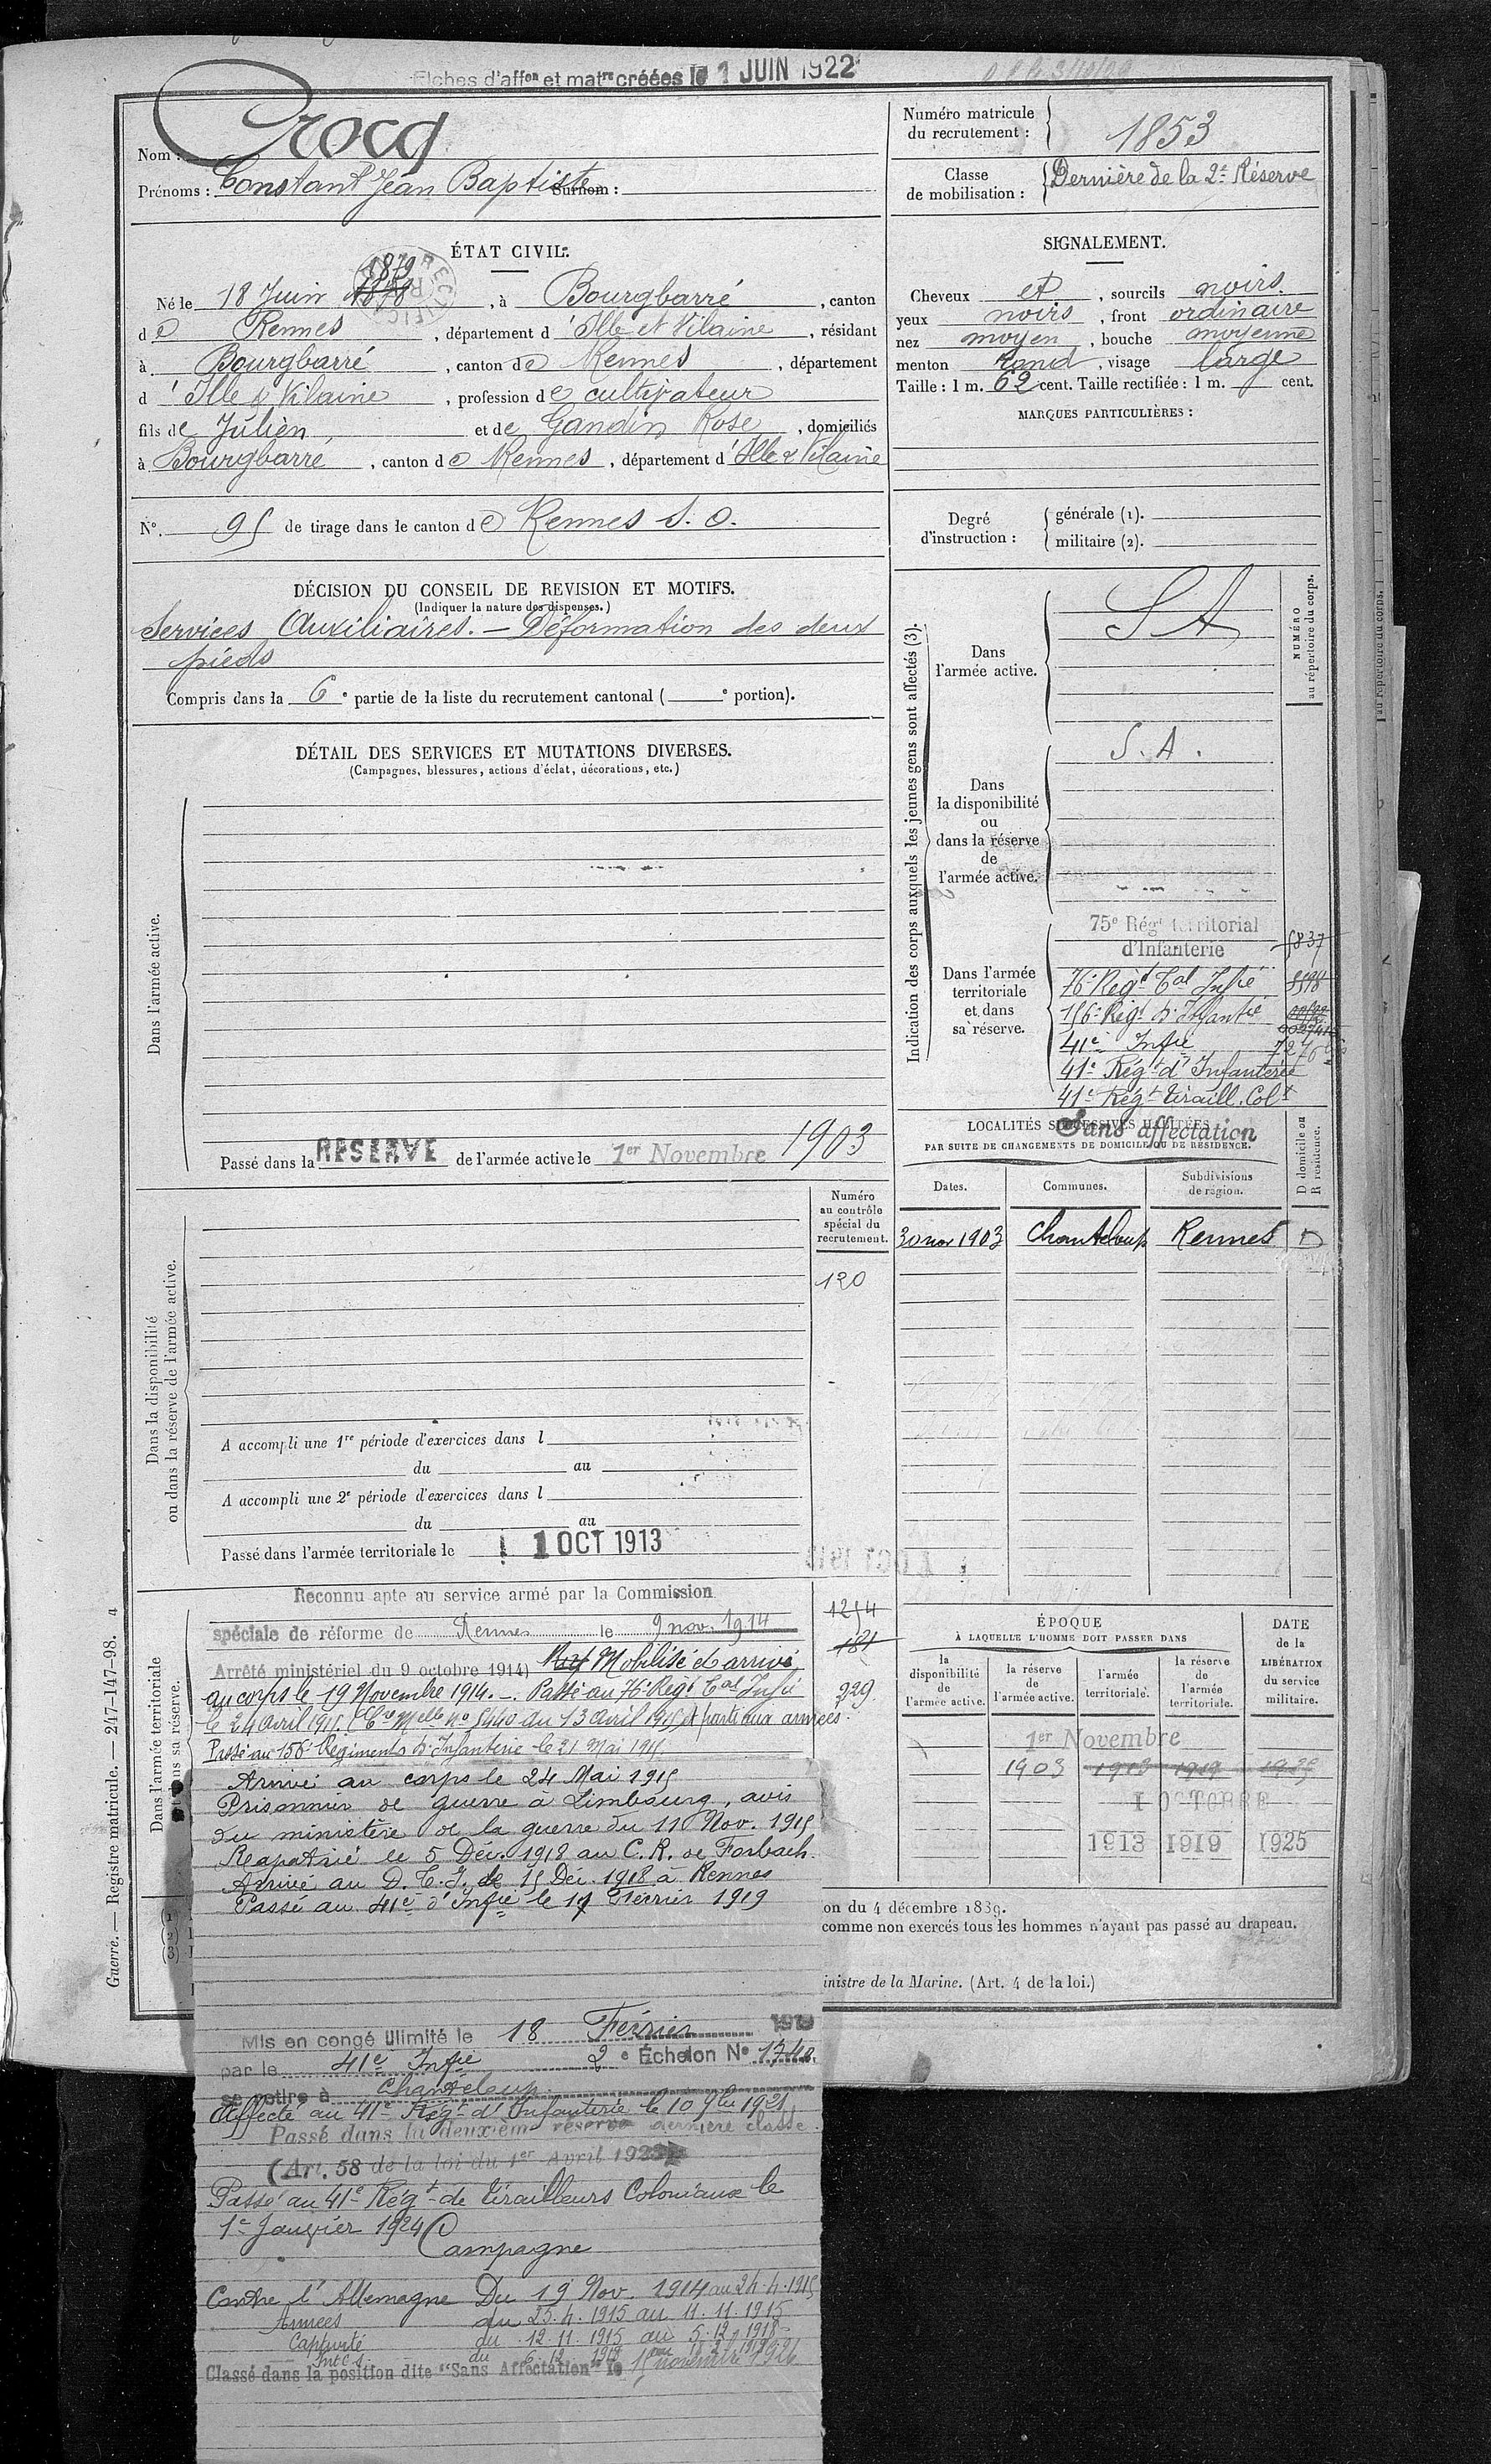 Fiches d'affon et matre créées le 1 JUIN 1922
Nom : Crocq
Prénoms : Constant Jean Baptiste Surnom :
Numéro matricule du recrutement : 1853
Classe de mobilisation : Dernière de la 2e Réserve
ÉTAT CIVIL.
1879
Né le 18 Juin 1878, à Bourgbarré, canton
de Rennes, département d'Ille et Vilaine, résidant
à Bourgbarré, canton de Rennes, département
d'Ille & Vilaine, profession de cultivateur
fils de Julien et de Gandin Rose, domiciliés
à Bourgbarré, canton de Rennes, département d'Ille & Vilaine
N° 95 de tirage dans le canton de Rennes S. O.
SIGNALEMENT.
Cheveux et, sourcils noirs
yeux noirs, front ordinaire
nez moyen, bouche moyenne
menton rond, visage large
Taille : 1 m. 62 cent. Taille rectifiée : 1 m. cent.
MARQUES PARTICULIÈRES :
Degré d'instruction : générale (1).
militaire (2).
DÉCISION DU CONSEIL DE REVISION ET MOTIFS.
(Indiquer la nature des dispenses.)
Services Auxiliaires. — Déformation des deux
pieds
Compris dans la 6e partie de la liste du recrutement cantonal ( e portion).
DÉTAIL DES SERVICES ET MUTATIONS DIVERSES.
(Campagnes, blessures, actions d'éclat, décorations, etc.)
Dans l'armée active.
Passé dans la RÉSERVE de l'armée active le 1er Novembre 1903
Indication des corps auxquels les jeunes gens sont affectés (3).
NUMÉRO au répertoire du corps.
Dans l'armée active.
SA
Dans la disponibilité ou dans la réserve de l'armée active.
S. A.
Dans l'armée territoriale et dans sa réserve.
75e Régt territorial
d'Infanterie 5837
76e Régt Tal Infie
156e Régt d'Infantie
41e Infie
41e Régt d'Infanterie
41e Régt tiraill. Colx
Sans affectation
LOCALITÉS SUCCESSIVES HABITÉES
PAR SUITE DE CHANGEMENTS DE DOMICILE OU DE RÉSIDENCE.
Dates. Communes. Subdivisions de région. D domicile ou R résidence.
30 nov 1903 Chanteloup Rennes D
Dans la disponibilité ou dans la réserve de l'armée active.
Numéro au contrôle spécial du recrutement.
120
A accompli une 1re période d'exercices dans l
du au
A accompli une 2e période d'exercices dans l
du au
Passé dans l'armée territoriale le 1 OCT 1913
Dans l'armée territoriale et dans sa réserve.
Reconnu apte au service armé par la Commission
spéciale de réforme de Rennes le 9 nov. 1914
Arrêté ministériel du 9 octobre 1914) Mobilisé et arrivé
au corps le 19 Novembre 1914. — Passé au 76e Régt Tal Infie
le 24 Avril 1915 (Cre Mlle no 5440 du 13 avril 1915) et parti aux armées.
Passé au 156e Régiment d'Infanterie le 21 Mai 1915.
1254
181
229
Arrivé au corps le 24 Mai 1915
Prisonnier de guerre à Limbourg, avis
du ministère de la guerre du 11 Nov. 1915
Rapatrié le 5 Déc. 1918 au C. R. de Forbach.
Arrivé au D. T. I. le 15 Déc. 1918 à Rennes
Passé au 41e d'Infie le 17 Février 1919
Mis en congé illimité le 18 Février 1919
par le 41e Infie 2e Échelon N° 1740
se retire à Chanteloup
Affecté au 41e Régt d'Infanterie le 10 9bre 1921
Passé dans la deuxième réserve dernière classe
(Art. 58 de la loi du 1er Avril 1923)
Passé au 41e Régt de tirailleurs Coloniaux le
1er Janvier 1924
Campagne
Contre l'Allemagne Du 19 Nov. 1914 au 24.4.1915
Armées du 25.4.1915 au 11.11.1915
Captivité du 12.11.1915 au 5.12.1918
Int. du 6.12.1918
Classé dans la position dite "Sans Affectation" le 15 novembre 1926
ÉPOQUE
À LAQUELLE L'HOMME DOIT PASSER DANS
la disponibilité de l'armée active. la réserve de l'armée active. l'armée territoriale. la réserve de l'armée territoriale.
DATE de la LIBÉRATION du service militaire.
1er Novembre
1903 1913 1919
1er OCTOBRE
1913 1919 1925
on du 4 décembre 1889.
comme non exercés tous les hommes n'ayant pas passé au drapeau.
inistre de la Marine. (Art. 4 de la loi.)
Guerre. — Registre matricule. — 247-147-98. 4
(1)
(2)
(3)
au répertoire du corps.